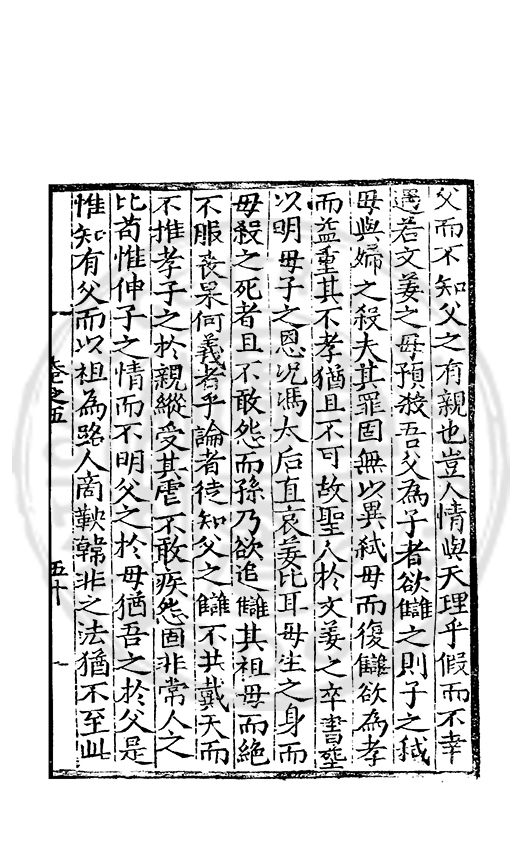 父而不知父之有親也豈人情與天理乎假而不幸
遇若文姜之母預殺吾父為子者欲讎之則子之弒
母與婦之殺夫其罪固無以異弒母而復讎欲為孝
而益重其不孝猶且不可故聖人於文姜之卒書薨
以明母子之恩況馮太后直哀姜比耳母生之身而
母殺之死者且不敢怨而孫乃欲追讎其祖母而絕
不服喪果何義者乎論者徒知父之讎不共戴天而
不推孝子之於親縱受其虐不敢疾怨固非常人之
比苟惟伸子之情而不明父之於母猶吾之於父是
惟知有父而以祖為路人商鞅韓非之法猶不至此
卷之五
五十一